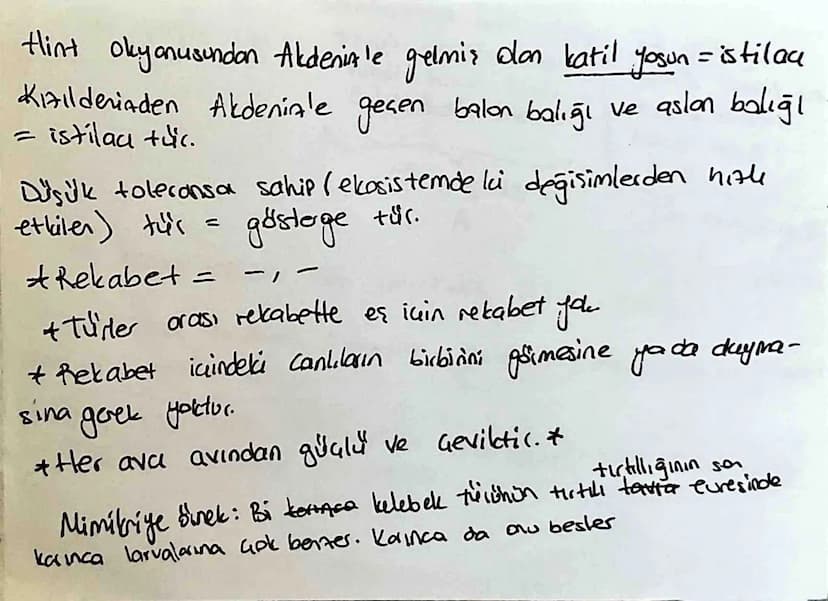 Hint okyanusundan Akdeniz'e gelmiş olan katil yosun = istilacı
Kızıldenizden Akdeniz'e geçen balon balığı ve aslan balığı
= istilacı tür.
Düşük toleransa sahip (ekosistemdeki değişimlerden hızlı
etkilen) tür = gösterge tür.
* Rekabet = -, -
* Türler arası rekabette eş için rekabet yok
* Rekabet içindeki canlıların birbirini görmesine ya da duyma-
sına gerek yoktur.
* Her avcı avından güçlü ve çeviktir. *
tırtıllığının son
Mimikriye örnek: Bi karınca kelebek türünün tırtılı evresinde
karınca larvalarına çok benzer. Karınca da onu besler